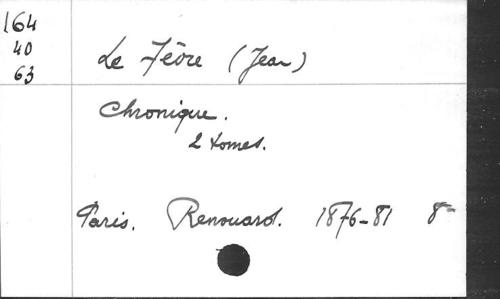 164
40
63
Le Fèvre (Jean)
Chronique.
2 tomes.
Paris. Renouard. 1876-81 8-